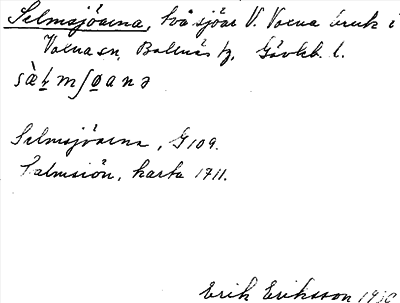 Selmsjöarna, två sjöar V. Voxna bruk i
Voxna sn, Bollnäs tg, Gävleb. l.
Selmsjöarna, G 109.
Salmsiön, karta 1711.
Erik Eriksson